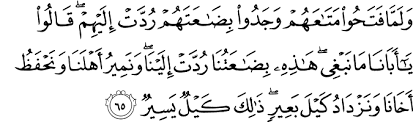 وَلَمَّا فَتَحُوا۟ مَتَـٰعَهُمْ وَجَدُوا۟ بِضَـٰعَتَهُمْ رُدَّتْ إِلَيْهِمْ ۖ قَالُوا۟
يَـٰٓأَبَانَا مَا نَبْغِى ۖ هَـٰذِهِۦ بِضَـٰعَتُنَا رُدَّتْ إِلَيْنَا ۖ وَنَمِيرُ أَهْلَنَا وَنَحْفَظُ
أَخَانَا وَنَزْدَادُ كَيْلَ بَعِيرٍ ۖ ذَٰلِكَ كَيْلٌ يَسِيرٌ ۝٦٥